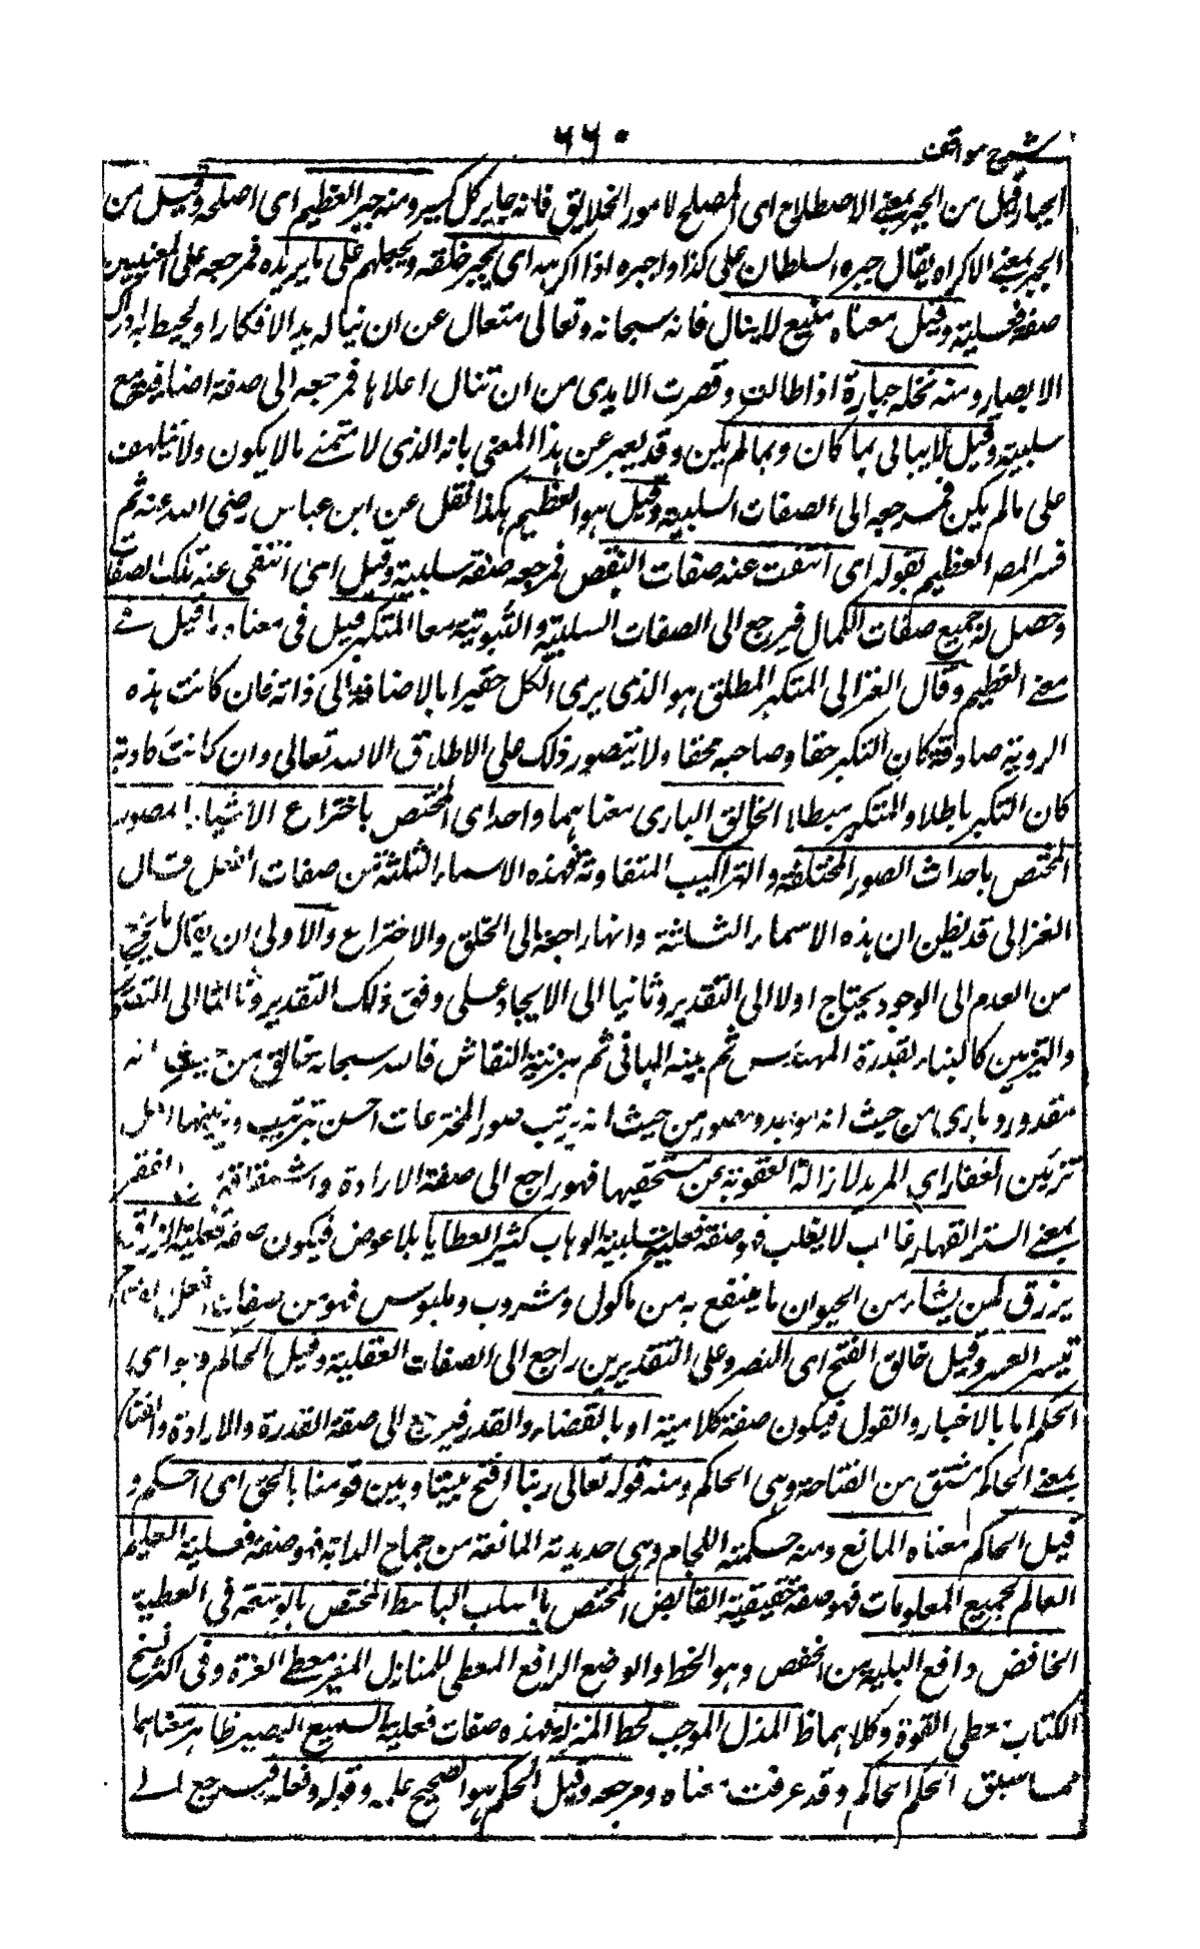 شرح مواقف
٦٦٠
الجبار قيل من الجبر بمعنى الاصطلاح اى المصلح لامور الخلايق فانه جابر كل كسير ومنه جبر العظيم اى اصلحه وقيل من
الجبر بمعنى الاكراه يقال جبره السلطان على كذا واجبره اذا اكرهه اى يجبر خلقه ويحملهم على ما يريده فمرجعه على المعنيين
صفة فعلية وقيل معناه منيع لا ينال فانه سبحانه وتعالى متعال عن ان يناله يد الافكار او يحيط به ادراك
الابصار ومنه نخلة جبارة اذا طالت وقصرت الايدى من ان تنال اعلاها فمرجعه الى صفة اضافية مع
سلبية وقيل لا يبالى بما كان وبما لم يكن وقد يعبر عن هذا المعنى بانه الذى لا يتمنى ما لا يكون ولا يتلهف
على ما لم يكن فمرجعه الى الصفات السلبية وقيل هو العظيم هكذا نقل عن ابن عباس رضى الله عنه ثم
فسر المصـ العظيم بقوله اى انتفت عنه صفات النقص فمرجعه صفة سلبية وقيل اى انتفى عنه تلك الصفات
وحصل له جميع صفات الكمال فيرجع الى الصفات السلبية والثبوتية معا المتكبر قيل فى معناه ما قيل فى
معنى العظيم وقال الغزالى المتكبر المطلق هو الذى يرى الكل حقيرا بالاضافة الى ذاته فان كانت هذه
الروية صادقة كان التكبر حقا وصاحبه محقا ولا يتصور ذلك على الاطلاق الا لله تعالى وان كانت كاذبة
كان التكبر باطلا والمتكبر مبطلا الخالق البارى معناهما واحد اى المختص باختراع الاشياء المصور
المختص باحداث الصور المختلفة والتراكيب المتفاوتة فهذه الاسماء الثلثة من صفات الفعل قال
الغزالى قد يظن ان هذه الاسماء الثلثة وانها راجعة الى الخلق والاختراع والاولى ان يقال ما يخرج
من العدم الى الوجود يحتاج اولا الى التقدير وثانيا الى الايجاد على وفق ذلك التقدير وثالثا الى التصوير
والتزيين كالبناء يقدره المهندس ثم يبنيه البانى ثم يزينه النقاش فالله سبحانه خالق من حيث انه
مقدور وبارى من حيث انه موجد ومصور من حيث انه يرتب صور المخترعات احسن ترتيب ويزينها اكمل
تزيين الغفار اى المريد لازالة العقوبة عن مستحقيها فهو راجع الى صفة الارادة واشتقاقه من الغفر
بمعنى الستر القهار غالب لا يغلب فهو صفة فعلية سلبية الوهاب كثير العطايا بلا عوض فيكون صفة فعلية الرزاق
يرزق لمن يشاء من الحيوان ما ينتفع به من ماكول ومشروب وملبوس فهو من صفات الفعل الفتاح
تيسير العسر وقيل خالق الفتح اى النصر وعلى التقديرين راجع الى الصفات الفعلية وقيل الحاكم وهو اى
الحكم اما بالاخبار والقول فيكون صفة كلامية او بالقضاء والقدر فيرجع الى صفة القدرة والارادة والفتاح
بمعنى الحاكم مشتق من الفتاحة وهى الحاكم ومنه قوله تعالى ربنا افتح بيننا وبين قومنا بالحق اى احكم و
قيل الحاكم معناه المانع ومنه حكمة اللجام وهى حديدته المانعة من جماح الدابة فهو صفة فعلية العليم
العالم لجميع المعلومات فهو صفة حقيقية القابض المختص بالسلب الباسط المختص بالتوسعة فى العطية
الخافض دافع البلية من الخفض وهو الحط والوضع الرافع المعطى للمنازل المعز معطى العزة وفى اكثر نسخ
الكتاب معطى القوة وكلاهما المذل الموجب لحط المنزلة فهذه صفات فعلية السميع البصير ظاهر معناهما
مما سبق الحكم الحاكم وقد عرفت معناه ومرجعه وقيل الحكم هو الصحيح علمه وقوله وفعله فيرجع الى